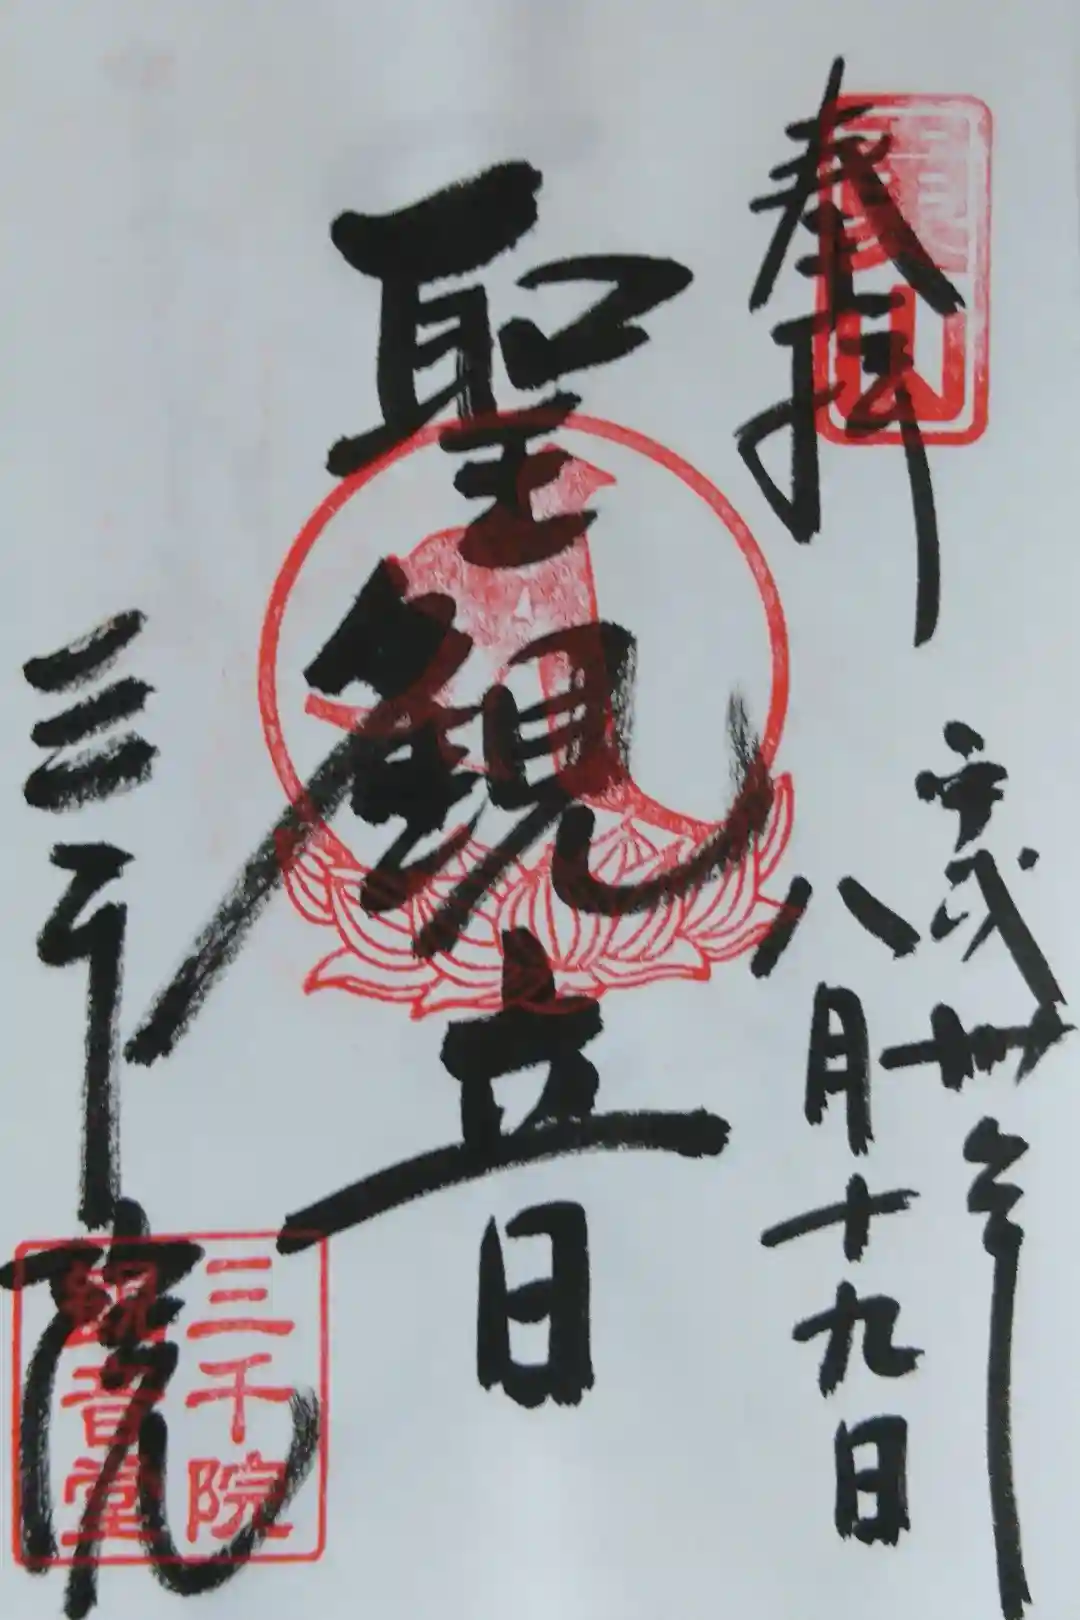 奉拝
平成卅年
八月十九日
聖観音
三千院
三千院
観音堂